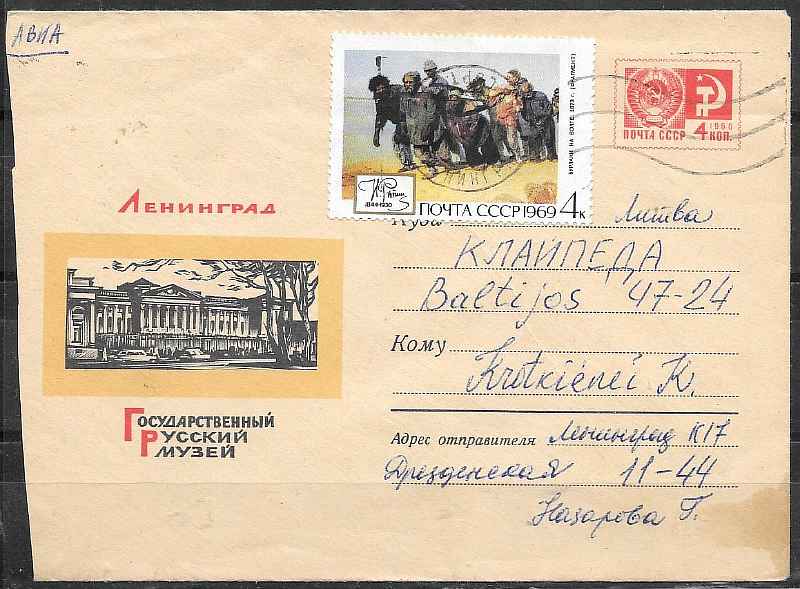 АВИА
БУРЛАКИ НА ВОЛГЕ. 1873 г. (ФРАГМЕНТ)
И. Репин
1844-1930
ПОЧТА СССР 1969 4к
ПОЧТА СССР 4 КОП.
1966
ЛЕНИНГРАД
ГОСУДАРСТВЕННЫЙ
РУССКИЙ
МУЗЕЙ
Куда Литва
КЛАЙПЕДА
Baltijos 47-24
Кому
Krotkienei K.
Адрес отправителя Ленинград К17
Дрезденская 11-44
Назарова Г.